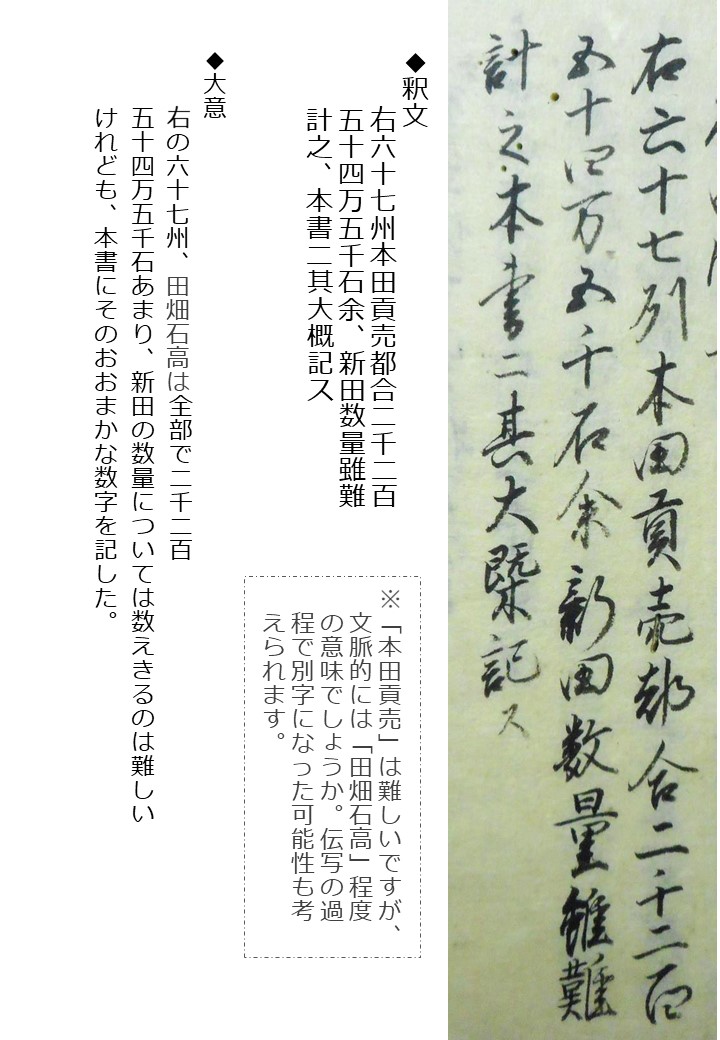 右六十七州本田貢売都合二千二百
五十四万五千石余新田数量雖難
計之本書二其大概記ス
◆釈文
右六十七州本田貢売都合二千二百
五十四万五千石余、新田数量雖難
計之、本書二其大概記ス
※「本田貢売」は難しいですが、
文脈的には「田畑石高」程度
の意味でしょうか。伝写の過
程で別字になった可能性も考
えられます。
◆大意
右の六十七州、田畑石高は全部で二千二百
五十四万五千石あまり、新田の数量については数えきるのは難しい
けれども、本書にそのおおまかな数字を記した。